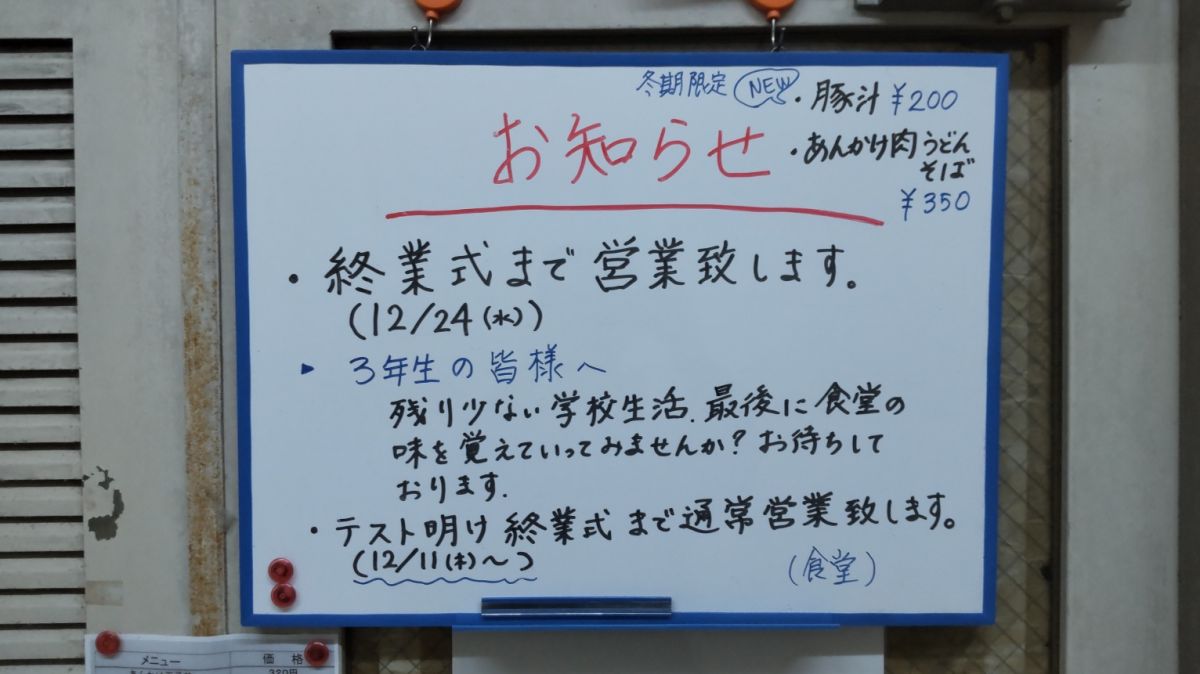 冬期限定 NEW ・豚汁 ¥200
お知らせ
・あんかけ肉うどん
そば
¥350
・終業式まで営業致します。
(12/24(水))
▸ 3年生の皆様へ
残り少ない学校生活.最後に食堂の
味を覚えていってみませんか?お待ちして
おります.
・テスト明け終業式まで通常営業致します。
(12/11(木)〜)
(食堂)
メニュー 価格